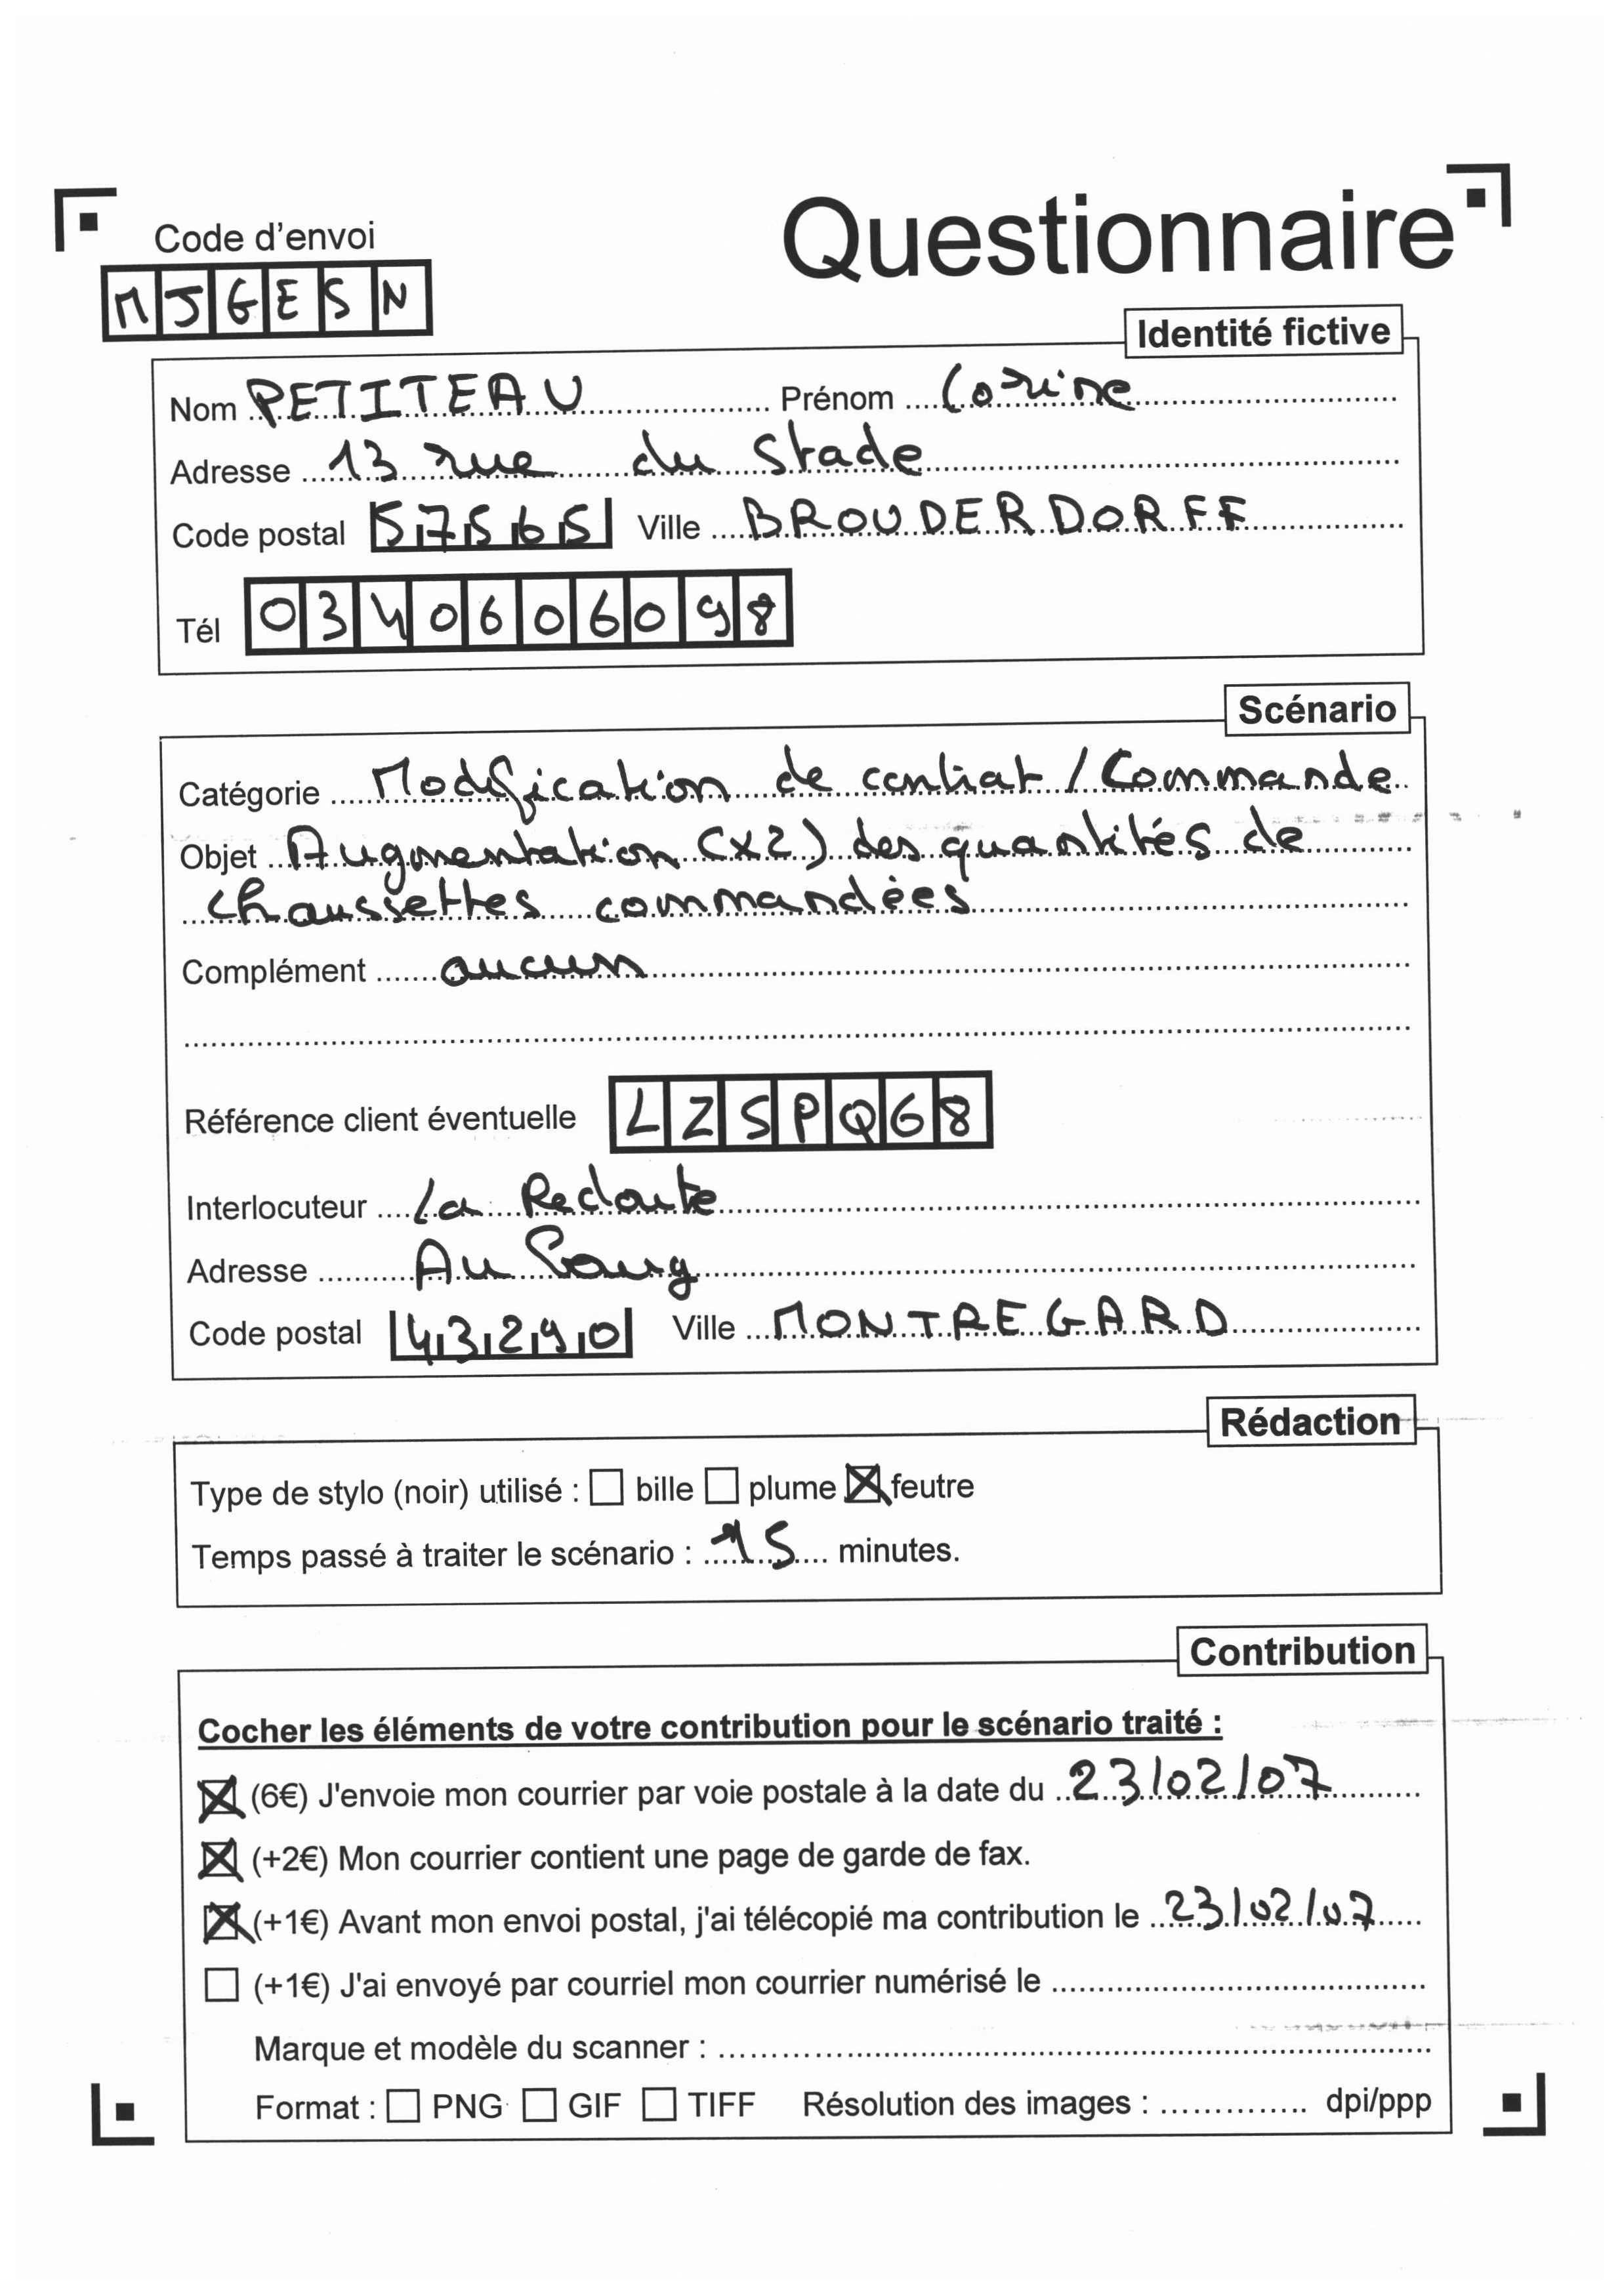 Code d'envoi
MJGESN
Questionnaire
Identité fictive
Nom PETITEAU Prénom Corine
Adresse 13 rue du Stade
Code postal 57565 Ville BROUDERDORFF
Tél 0340606098
Scénario
Catégorie Modification de contrat / Commande
Objet Augmentation (x2) des quantités de
chaussettes commandées
Complément aucun
Référence client éventuelle LZSPQ68
Interlocuteur La Redoute
Adresse Au
Code postal 43290 Ville MONTREGARD
Rédaction
Type de stylo (noir) utilisé : bille plume feutre
Temps passé à traiter le scénario : 15 minutes.
Contribution
Cocher les éléments de votre contribution pour le scénario traité :
(6€) J'envoie mon courrier par voie postale à la date du 23/02/07
(+2€) Mon courrier contient une page de garde de fax.
(+1€) Avant mon envoi postal, j'ai télécopié ma contribution le 23/02/07
(+1€) J'ai envoyé par courriel mon courrier numérisé le
Marque et modèle du scanner :
Format : PNG GIF TIFF Résolution des images : dpi/ppp